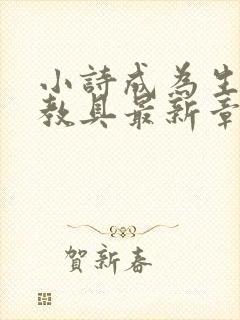 小詩成為生
教具最新章
賀新春